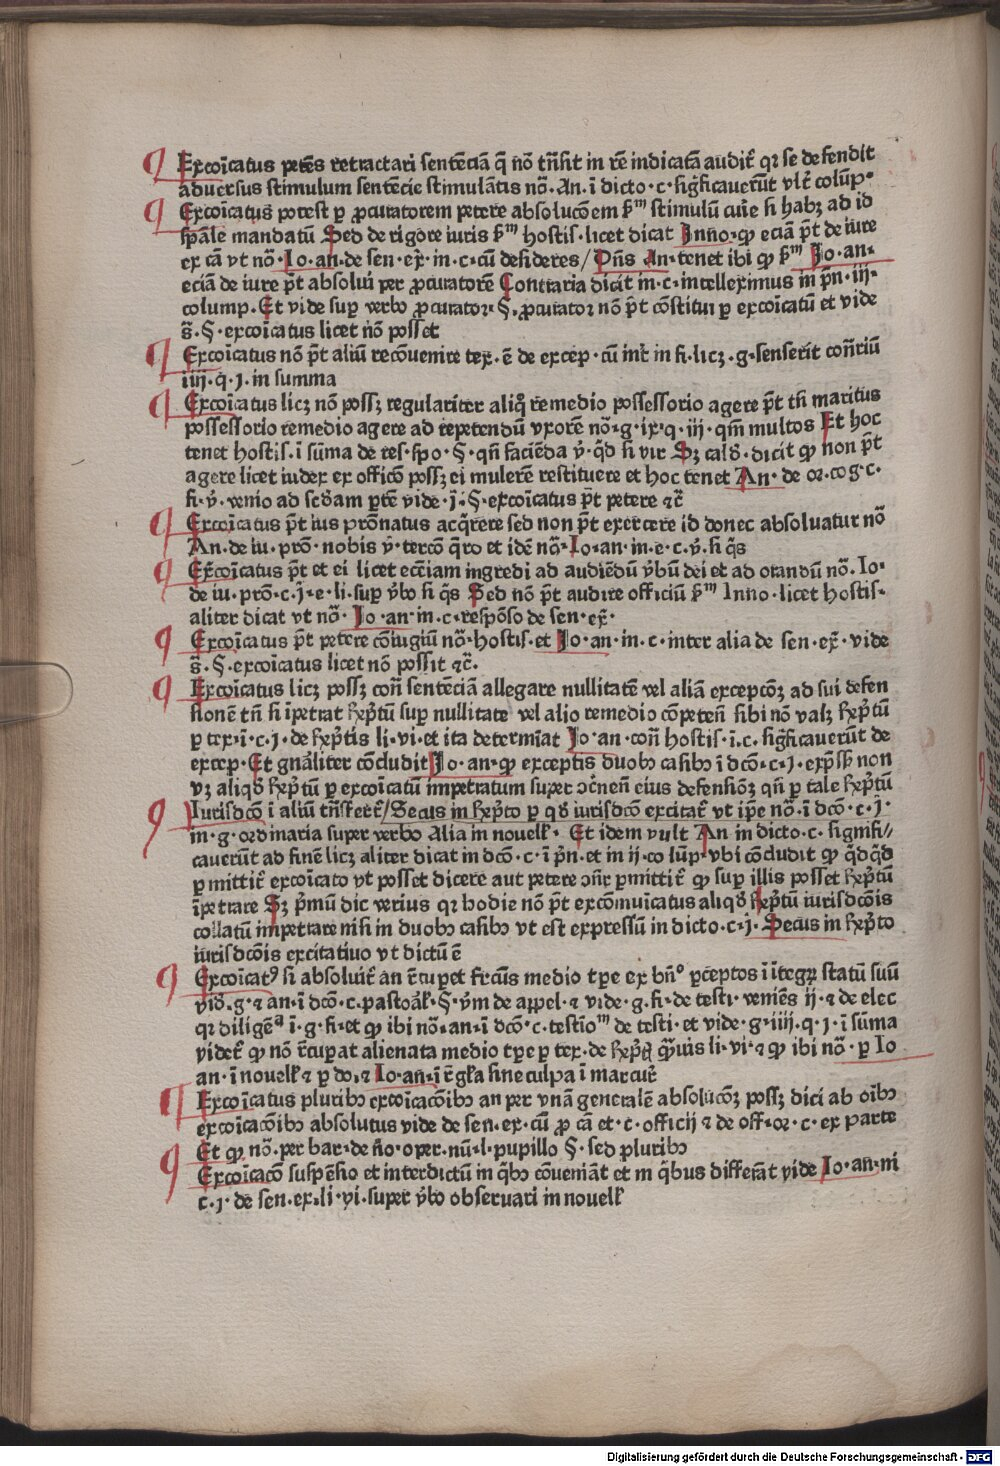 Excoīcatus petēs retractari sentēciā q̄ nō trāsit in rē indicatā audit̄ qꝛ se defendit
aduersus stimulum sentēcie stimulātis nō. An. ī dicto. c. significauerūt vlt̄ colūp.
Excoīcatus potest ꝑ ꝓcuratorem petere absolucōem ẜm stimulū cuiꝰ si habꝫ ad id
spāle mandatū Sed de rigore iuris ẜm hostis. licet dicat Inno. ꝙ eciā pt̄ de iure
ex cā vt nō. Io. an. de sen. ex̄. in. c. cū desideres/ Pn̄s An. tenet ibi ꝙ ẜm Io. an.
eciā de iure pt̄ absolui per ꝓcuratorē Contraria dicit in. c. intelleximus in pn̄. iij.
column. Et vide suꝑ verbo ꝓcurator. §. ꝓcurator nō pt̄ cōstitui ꝑ excoīcatū et vide
s̄. §. excoīcatus licet nō posset
Excoīcatus nō pt̄ aliū recōuenire tex. ē de excep. cū int̄ in fi. licꝫ. g. senserit cōn̄riū
iiij. q. j. in summa
Excoīcatus licꝫ nō possꝫ regulariter aliqͦ remedio possessorio agere pt̄ tn̄ maritus
possessorio remedio agere ad repetendū vxorē nō. g. ix. q. iij. qm̄ multos Et hoc
tenet hostis. ī sūma de res. spo. §. qn̄ faciēda ꝟ. qͥd si vir Sꝫ cald̄. dicit ꝙ non pt̄
agere licet iudex ex officō possꝫ ei mulerē restituere et hoc tenet An. de oꝛ. cog. c.
fi. ꝟ. venio ad scd̄am ꝑtē vide. j. §. excoīcatus pt̄ petere ⁊c̄
Excoīcatus pt̄ ius prōnatus acqͥrere sed non pt̄ exercere id donec absoluatur nō
An. de iu. prō. nobis ꝟ. tercō qͥro et idē nō. Io. an. in. e. c. ꝟ. si qͥs
Excoīcatus pt̄ et ei licet ecc̄iam ingredi ad audiēdū ꝟbū dei et ad orandū nō. Io.
de iu. prō. c. j. e. li. suꝑ ꝟbo si qͥs Sed nō pt̄ audire officiū ẜm Inno. licet hostis.
aliter dicat vt nō. Io. an. in. c. respōso de sen. ex̄.
Excoīcatus pt̄ petere cōiugiū nō. hostis. et Io. an. in. c. inter alia de sen. ex̄. vide
s̄. §. excoīcatus licet nō possit ⁊c̄.
Excoīcatus licꝫ possꝫ con̄ sentēciā allegare nullitatē vel aliā excepcōꝫ ad sui defen
sionē tn̄ si īpetrat rescp̄tū suꝑ nullitate vel alio remedio cōpeten̄ sibi nō valꝫ rescp̄tū
ꝑ tex. ī. c. j. de rescp̄tis li. vi. et ita determīat Io. an. con̄ hostis. ī. c. significauerūt de
excep. Et gnāliter cōcludit Io. an. ꝙ exceptis duobꝰ casibꝰ ī dcō. c. j. exp̄ssis non
vꝫ aliqd̄ rescp̄tū ꝑ excoīcatū impetratum super ꝯc̄nen̄ eius defensiōꝫ qn̄ ꝑ tale rescp̄tū
Iurisdcō ī aliū trn̄sferet̄/ Secus in rescp̄to ꝑ qd̄ iurisdcō excitat̄ vt ip̄e nō. ī dcō. c. j.
in. g. ordinaria super verbo Alia in nouell̄. Et idem vult An in dicto. c. signifi//
cauerūt ad finē licꝫ aliter dicat in dcō. c. ī pn̄. et in ij. colūp. vbi cōcludit ꝙ qͥdqͥd
ꝑmittit̄ excoīcato vt posset dicere aut petere ꝯn̄r ꝑmittit̄ ꝙ suꝑ illis posset rescp̄tū
īpetrare Sꝫ pͥmū dic verius qꝛ hodie nō pt̄ excōmuicatus aliqd̄ rescp̄tū iurisdcōis
collatū impetrare nisi in duobꝰ casibꝰ vt est expressū in dicto. c. j. Secus in rescp̄to
iurisdcōis excitatiuo vt dictū ē
Excoīcatꝰ si absoluit̄ an r̄cuꝑet fructꝰ medio tꝑe ex bn̄o ꝑceptos ī ītegrꝫ statū suū
vid̄. g. ⁊ an. ī dcō. c. pastoāl. §. ꝟm de appel. ⁊ vide. g. fi. de testi. veniēs ij. ⁊ de elec
qꝛ diligē ī. g. fi. et ꝙ ibi nō. an. ī dcō. c. testio de testi. et vide. g. iiij. q. j. ī sūma
videt̄ ꝙ nō r̄cuꝑat alienata medio tꝑe ꝑ tex. de rescp̄. qͣuis li. vi. ⁊ ꝙ ibi nō. ꝑ Io
an. ī nouell̄ ⁊ ꝑ do. ⁊ Io. an. ī r̄gl̄a sine culpa ī marcur̄
Excoīcatus pluribꝰ excoīcacōibꝰ an per vnā generalē absolucōꝫ possꝫ dici ab oībꝰ
excoīcacōibꝰ absolutus vide de sen. ex. cū ꝓ cā et. c. officij ⁊ de off. oꝛ. c. ex parte
Et ꝙ nō. per bar. de no. oper. nū. l. pupillo §. sed pluribꝰ
Excoīcacō suspēsio et interdictū in qͥbꝰ cōueniāt et in qͥbus differāt vide Io. an. in
c. j. de sen. ex. li. vi. super ꝟbo obseruari in nouell̄
Digitalisierung gefördert durch die Deutsche Forschungsgemeinschaft - DFG